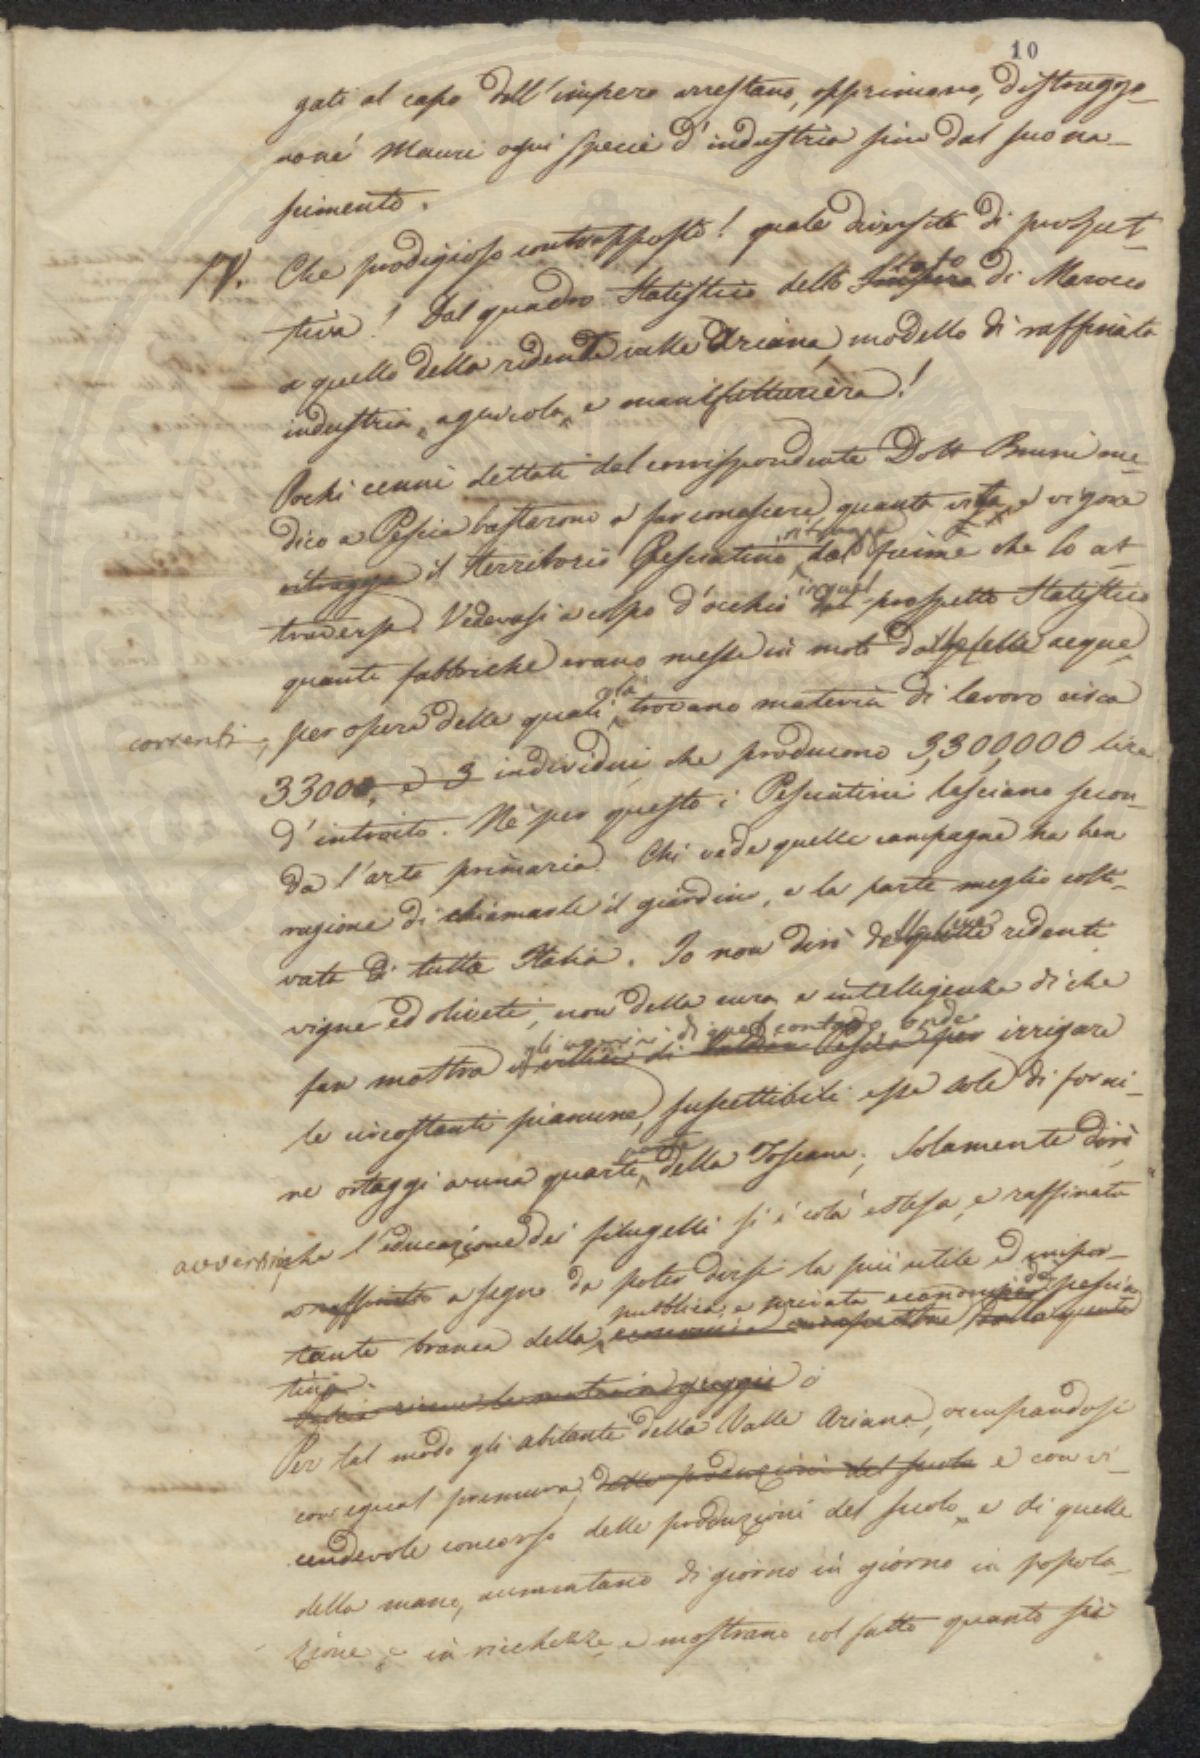 10
gati al capo dell'impero arrestano, opprimono, distruggo-
no ne' Mauri ogni specie d'industria fino dal suo na-
scimento.
IV. Che prodigioso contrapposto! quale diversità di prospet-
tiva! Dal quadro statistico dello Stato Impero di Marocco
a quello della ridente valle Ariana, modello di raffinata
industria, agricola, e manifatturiera!
Pochi cenni dettati dal corrispondente Dott Bruni me-
dico a Pescia bastarono a far conoscere quanta vita, e vigore
ritragga
ritragga il territorio Pesciatino, dal fiume che lo at-
in quel
traversa. Vedevasi a colpo d'occhio dal prospetto statistico
quante fabbriche erano messe in moto dalle acque
già
correnti, per opera delle quali trovano materia di lavoro circa
33000, e 3 individui, che producono 3,300,000 lire
d'introito. Nè per questo i Pesciatini lasciano secon-
da l'arte primaria. Chi vede quelle campagne ha ben
ragione di chiamarle il giardino, e la parte meglio colti-
vata di tutta Italia. Io non dirò delle ridenti
vigne ed oliveti, non della cura, e intelligenza di che
gli uomini di quel contado, onde
fan mostra i villici di Valdi Pescia per irrigare
le circostanti pianure, suscettibili esse sole di forni-
parte
re ortaggi a una quarta della Toscana; solamente dirò
avvertirò, che l'educazione dei filugelli si è colà estesa, e raffinata
e raffinata a segno da poter dirsi la più utile ed impor-
pubblica, e privata economia pescia-
tante branca della economia
tina.
ricava la materia greggia
Per tal modo gli abitanti della Valle Ariana, occupandosi
con egual premura, delle produzioni del suolo e con vi-
cendevole concorso delle produzioni del suolo, e di quelle
della mano, aumentano di giorno in giorno in popola-
zione, e in ricchezze, e mostrano col fatto quanto sia